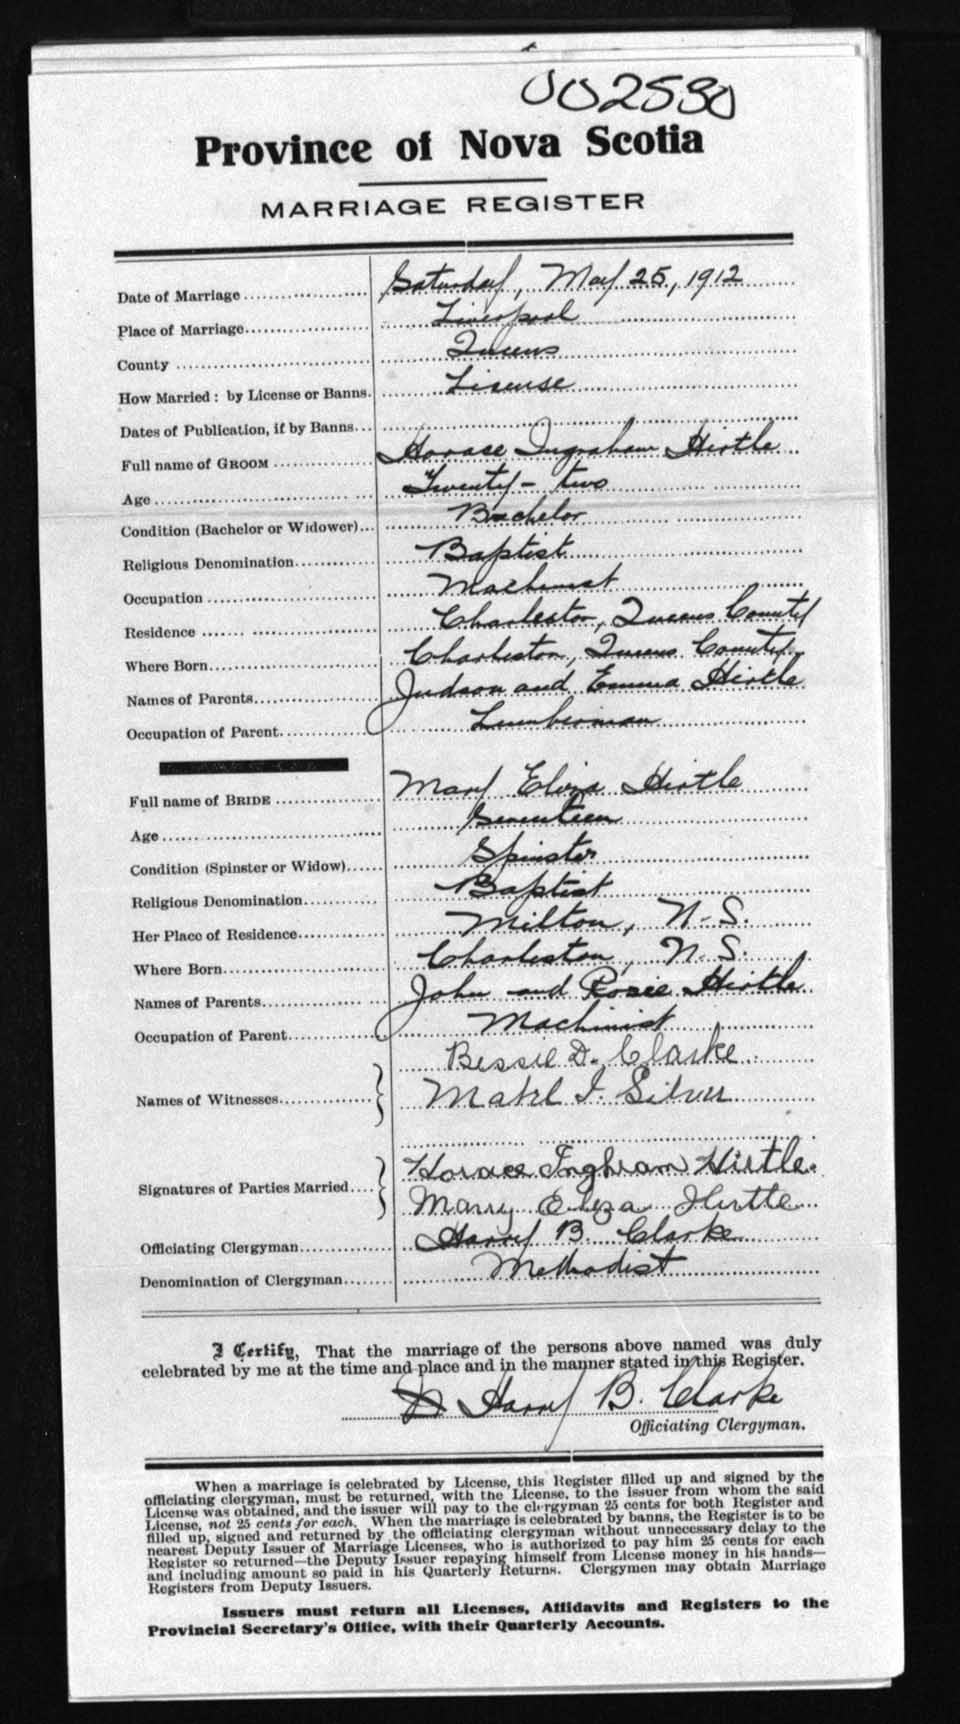 002530
Province of Nova Scotia
MARRIAGE REGISTER
Date of Marriage Saturday, May 25, 1912
Place of Marriage Liverpool
County Queens
How Married: by License or Banns. License
Dates of Publication, if by Banns
Full name of GROOM Horace Ingraham Hirtle
Age Twenty-two
Condition (Bachelor or Widower) Bachelor
Religious Denomination Baptist
Occupation Machinist
Residence Charleston, Queens County
Where Born Charleston, Queens County
Names of Parents Judson and Emma Hirtle
Occupation of Parent Lumberman
Full name of BRIDE Mary Eliza Hirtle
Age Seventeen
Condition (Spinster or Widow) Spinster
Religious Denomination Baptist
Her Place of Residence Milton, N.S.
Where Born Charleston, N.S.
Names of Parents John and Rosie Hirtle
Occupation of Parent Machinist
Bessie D. Clarke
Names of Witnesses Mabel I. Silver
Horace Inghram Hirtle.
Signatures of Parties Married
Marry Eliza Hirtle
Officiating Clergyman Harry B. Clarke
Denomination of Clergyman Methodist
I Certify, That the marriage of the persons above named was duly
celebrated by me at the time and place and in the manner stated in this Register.
Harry B. Clarke
Officiating Clergyman.
When a marriage is celebrated by License, this Register filled up and signed by the
officiating clergyman, must be returned, with the License, to the issuer from whom the said
License was obtained, and the issuer will pay to the clergyman 25 cents for both Register and
License, not 25 cents for each. When the marriage is celebrated by banns, the Register is to be
filled up, signed and returned by the officiating clergyman without unnecessary delay to the
nearest Deputy Issuer of Marriage Licenses, who is authorized to pay him 25 cents for each
Register so returned—the Deputy Issuer repaying himself from License money in his hands—
and including amount so paid in his Quarterly Returns. Clergymen may obtain Marriage
Registers from Deputy Issuers.
Issuers must return all Licenses, Affidavits and Registers to the
Provincial Secretary's Office, with their Quarterly Accounts.